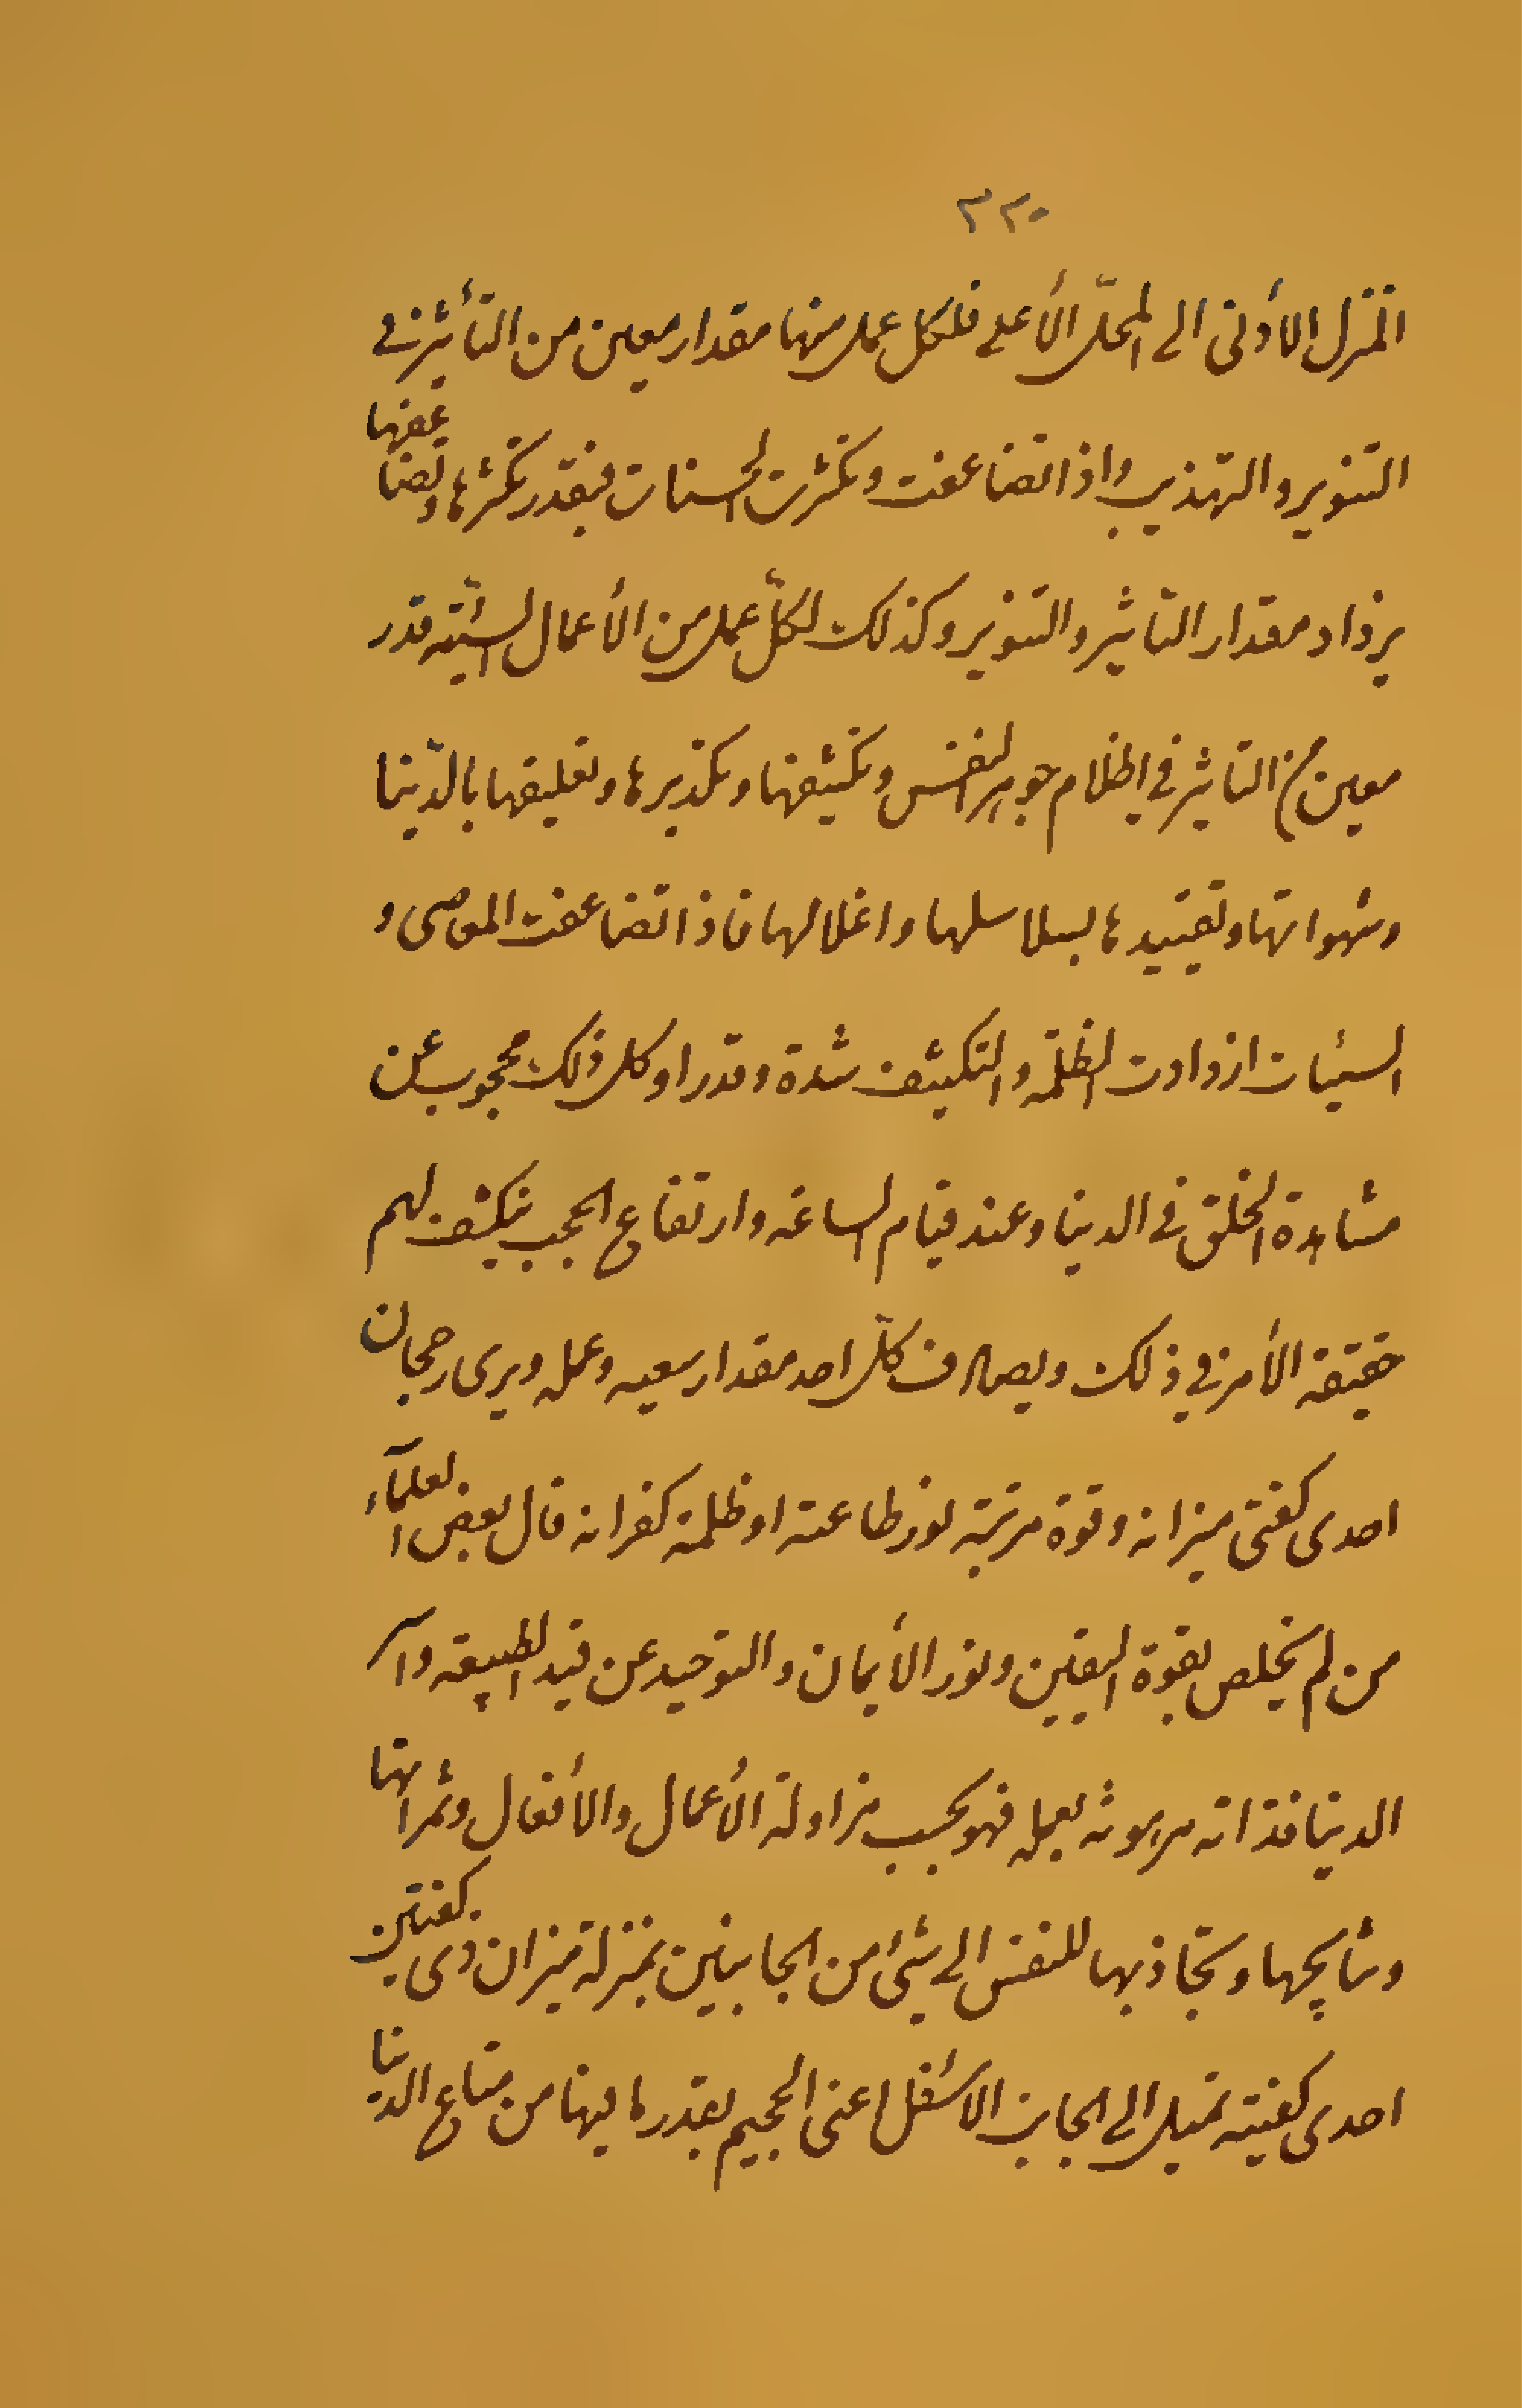 ٣٢٠
المنزل الأدنى الى المحلّ الأعلى فلكل عمل منها مقدار معين من التأثير في
التنوير والتهذيب واذا تضاعفت وتكثرت الحسنات فبقدر تكثرها وتضاعفها
يزداد مقدار التاثير والتنوير وكذلك لكلّ عمل من الأعمال السيّئه قدر
معين من التاثير في اظلام جوهر النفس وتكثيفها وتكذيرها وتعليقها بالدّنيا
وشهواتها وتقييدها بسلاسلها واغلالها فاذا تضاعفت المعاصى و
السيئات ازدادت الظلمه والتكثيف شدة وقدرا وكل ذلك محجوب عن
مشاهدة الخلق في الدنيا وعند قيام الساعه وارتفاع الحجب ينكشف لهم
حقيقة الأمر في ذلك ويصادف كلّ احد مقدار سعيه وعمله ويرى رجحان
احدى كفتى ميزانه وقوة مرتبة نور طاعته او ظلمة كفرانه قال بعض العلمآء
من لم يخلص بقوة اليقين ونور الأيمان والتوحيد عن قيد الطبيعه واسر
الدنيا فذاته مرهونه بعمله فهو بحسب مزاولة الأعمال والأفعال وثمراتها
ونتايجها وتجاذبها للنفس الى شئ من الجانبين بمنزلة ميزان ذى كفتين
احدى كفيته تميل الى الجانب الأسفل اعنى الجحيم بقدر ما فيها من متاع الدنيا